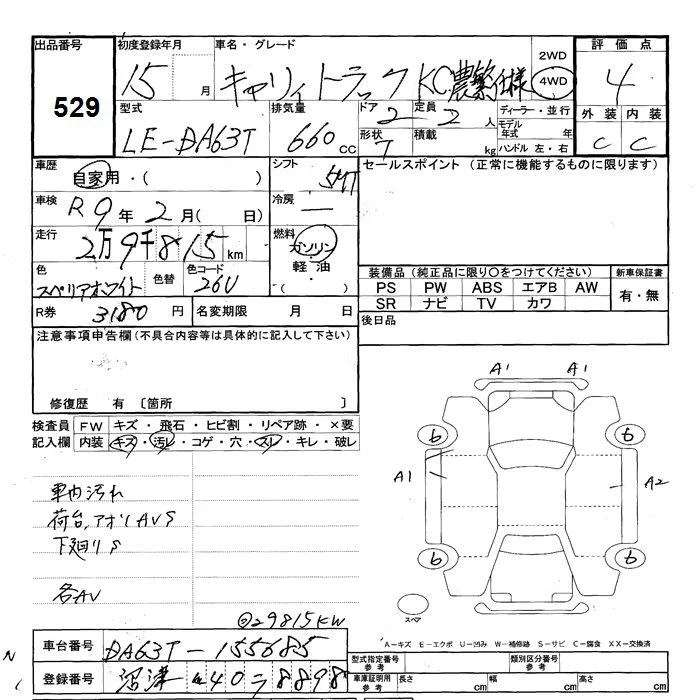 出品番号 初度登録年月 車名・グレード 2WD 評価点
529 15 月 キャリィトラック KC農繁仕様 4WD 4
型式 排気量 ドア 定員 ディーラー・並行 外装 内装
LE-DA63T 660 cc 2 2 人 モデル年式 年 C C
形状 T 積載 kg ハンドル 左・右
車歴 自家用・( ) シフト 5MT セールスポイント (正常に機能するものに限ります)
車検 R9年2月( 日) 冷房 ー
走行 2万9千815km 燃料 ガソリン・軽油・( )
色 スペリアホワイト 色替 色コード 26U
装備品 (純正品に限り○をつけてください) 新車保証書
PS PW ABS エアB AW 有・無
SR ナビ TV カワ
R券 3180 円 名変期限 月 日 後日品
注意事項申告欄(不具合内容等は具体的に記入して下さい)
修復歴 有 〔箇所 〕
検査員 FW キズ・飛石・ヒビ割・リペア跡・×要
記入欄 内装 キズ・汚レ・コゲ・穴・スレ・キレ・破レ
A1 A1
6 6
A1 A2
6 6
スペア
車内汚れ
荷台,アオリAVS
下廻りS
各AV
29815KW
A-キズ E-エクボ U-凹み W-補修跡 S-サビ C-腐食 XX-交換済
車台番号 DA63T-155685
登録番号 沼津 40 ラ 8898
型式指定番号 参考 類別区分番号 参考
車庫証明用 参考 長さ cm 幅 cm 高さ cm
N